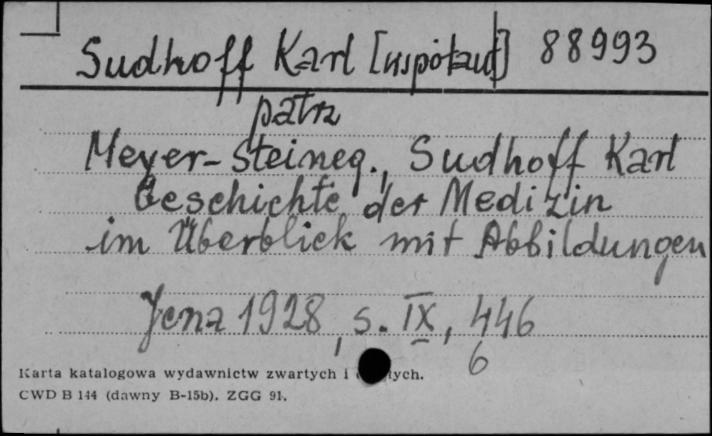 Sudhoff Karl [współaut] 88993
patrz
Meyer-Steineg., Sudhoff Karl
Geschichte der Medizin
im Überblick mit Abbildungen
Jena 1928, s. IX, 446
6
Karta katalogowa wydawnictw zwartych i
CWD B 144 (dawny B-15b). ZGG 91.